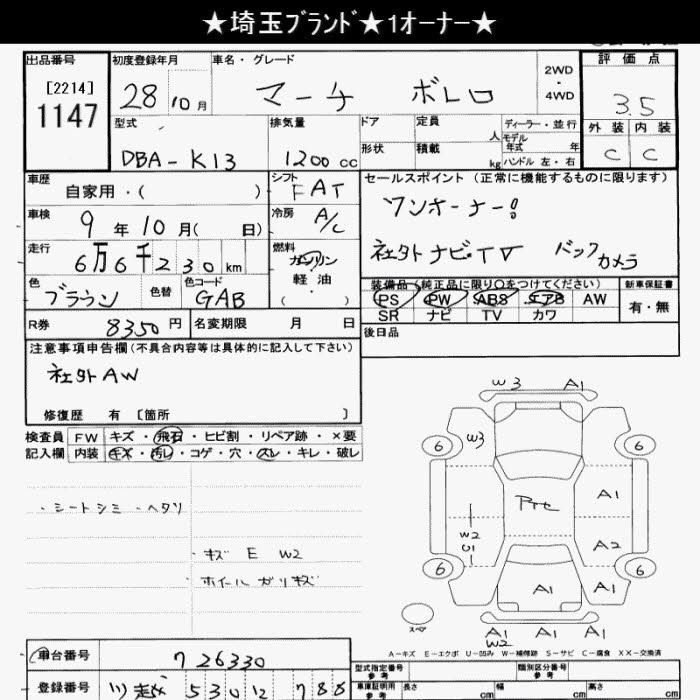 ★埼玉ブランド★1オーナー★
出品番号 初度登録年月 車名・グレード 2WD・4WD 評価点
[2214]
1147 28 10月 マーチ ボレロ 3.5
型式 排気量 ドア 定員 人 ディーラー・並行 外装 内装
DBA-K13 1200cc 形状 積載 kg モデル年式 年 ハンドル 左・右 C C
車歴 自家用・( ) シフト FAT セールスポイント(正常に機能するものに限ります)
車検 9年10月( 日) 冷房 A/C ワンオーナー!
走行 6万6千230km 燃料 ガソリン 軽油 ( ) 社外ナビ・TV バックカメラ
色 ブラウン 色替 色コード GAB 装備品(純正品に限り○をつけてください) 新車保証書
PS PW ABS エアB AW 有・無
R券 8350円 名変期限 月 日 SR ナビ TV カワ
後日品
注意事項申告欄(不具合内容等は具体的に記入して下さい)
社外AW
修復歴 有 [箇所 ]
検査員 FW キズ・飛石・ヒビ割・リペア跡・×要
記入欄 内装 キズ・汚レ・コゲ・穴・スレ・キレ・破レ
・シートシミ・ヘタリ
・キズ E W2
ホイールガリキズ
W3 A1
6 W3 6
A1
W2 U1 A2
6 A1 A1 6
スペア A1 A1 A1
W2
A-キズ E-エクボ U-凹み W-補修跡 S-サビ C-腐食 XX-交換済
車台番号 726330 型式指定番号 参考 類別区分番号 参考
登録番号 5 30 車庫証明用 参考 長さ cm 幅 cm 高さ cm